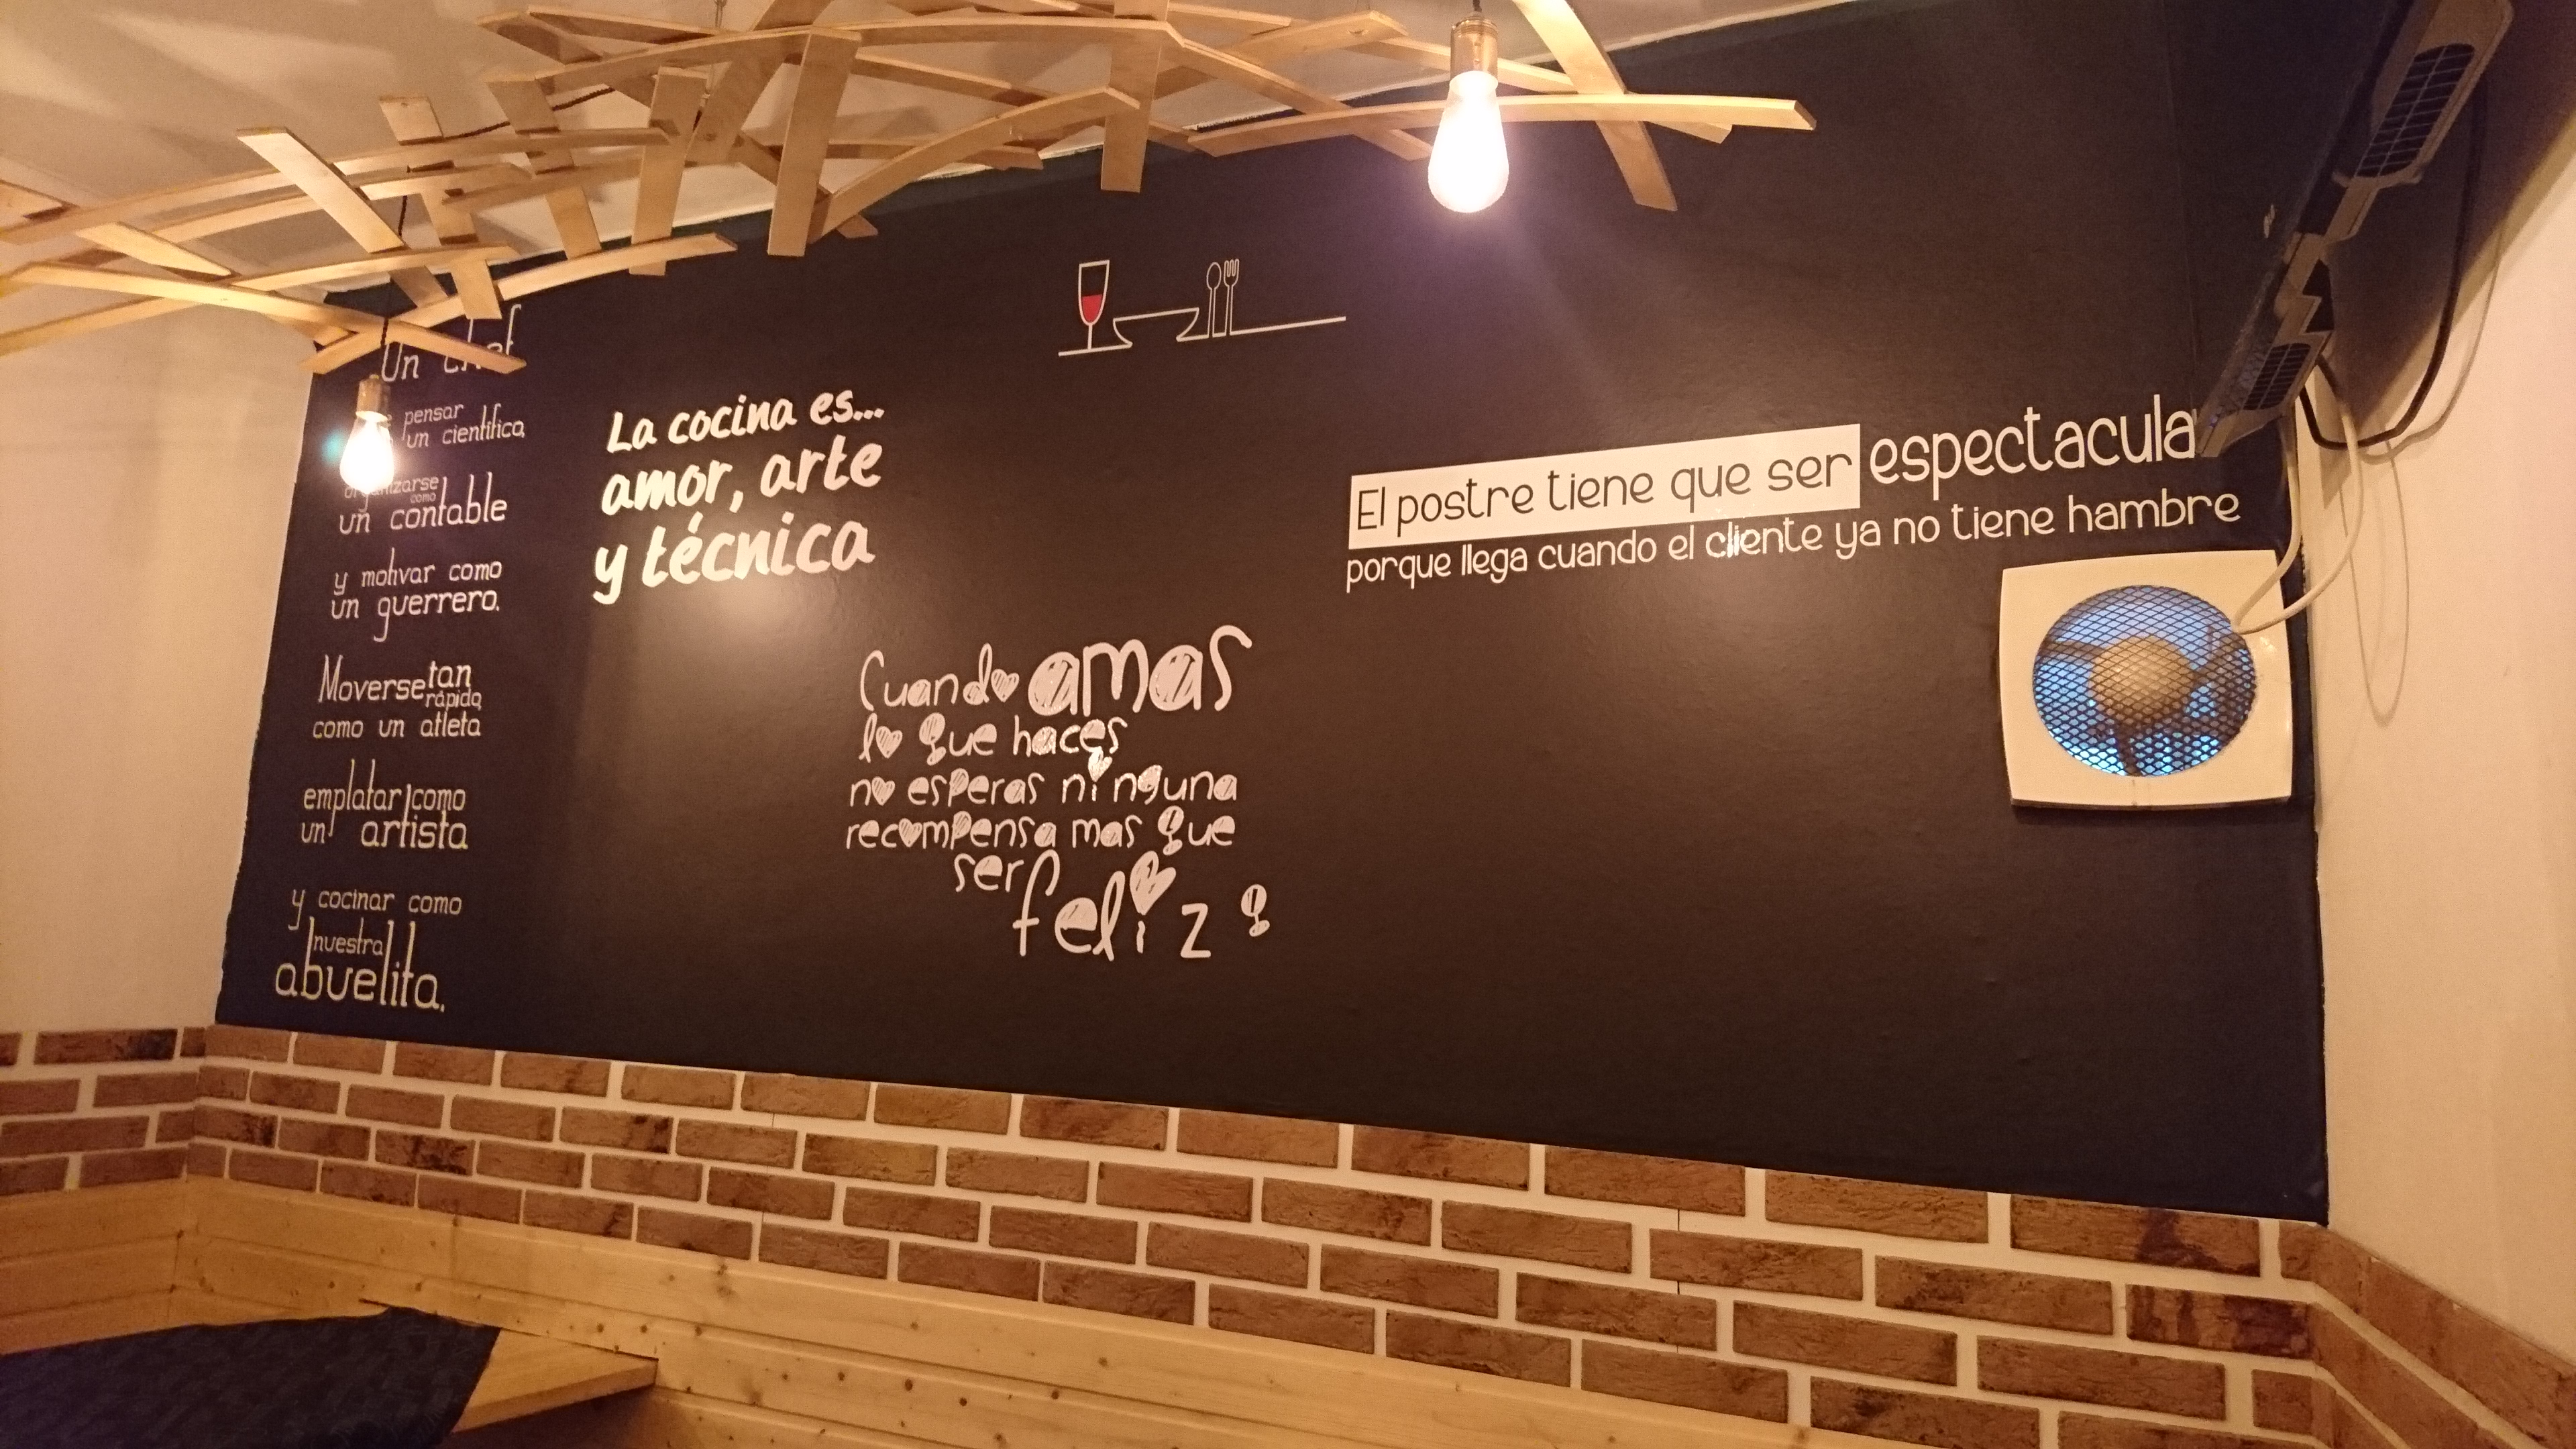 Un chef
pensar
un científico,
organizarse
como
un contable
y motivar como
un guerrero.
Moverse tan
rápido,
como un atleta
emplatar como
un artista
y cocinar como
nuestra
abuelita.
La cocina es...
amor, arte
y técnica
Cuando amas
lo que haces
no esperas ninguna
recompensa mas que
ser
feliz
El postre tiene que ser espectacula
porque llega cuando el cliente ya no tiene hambre